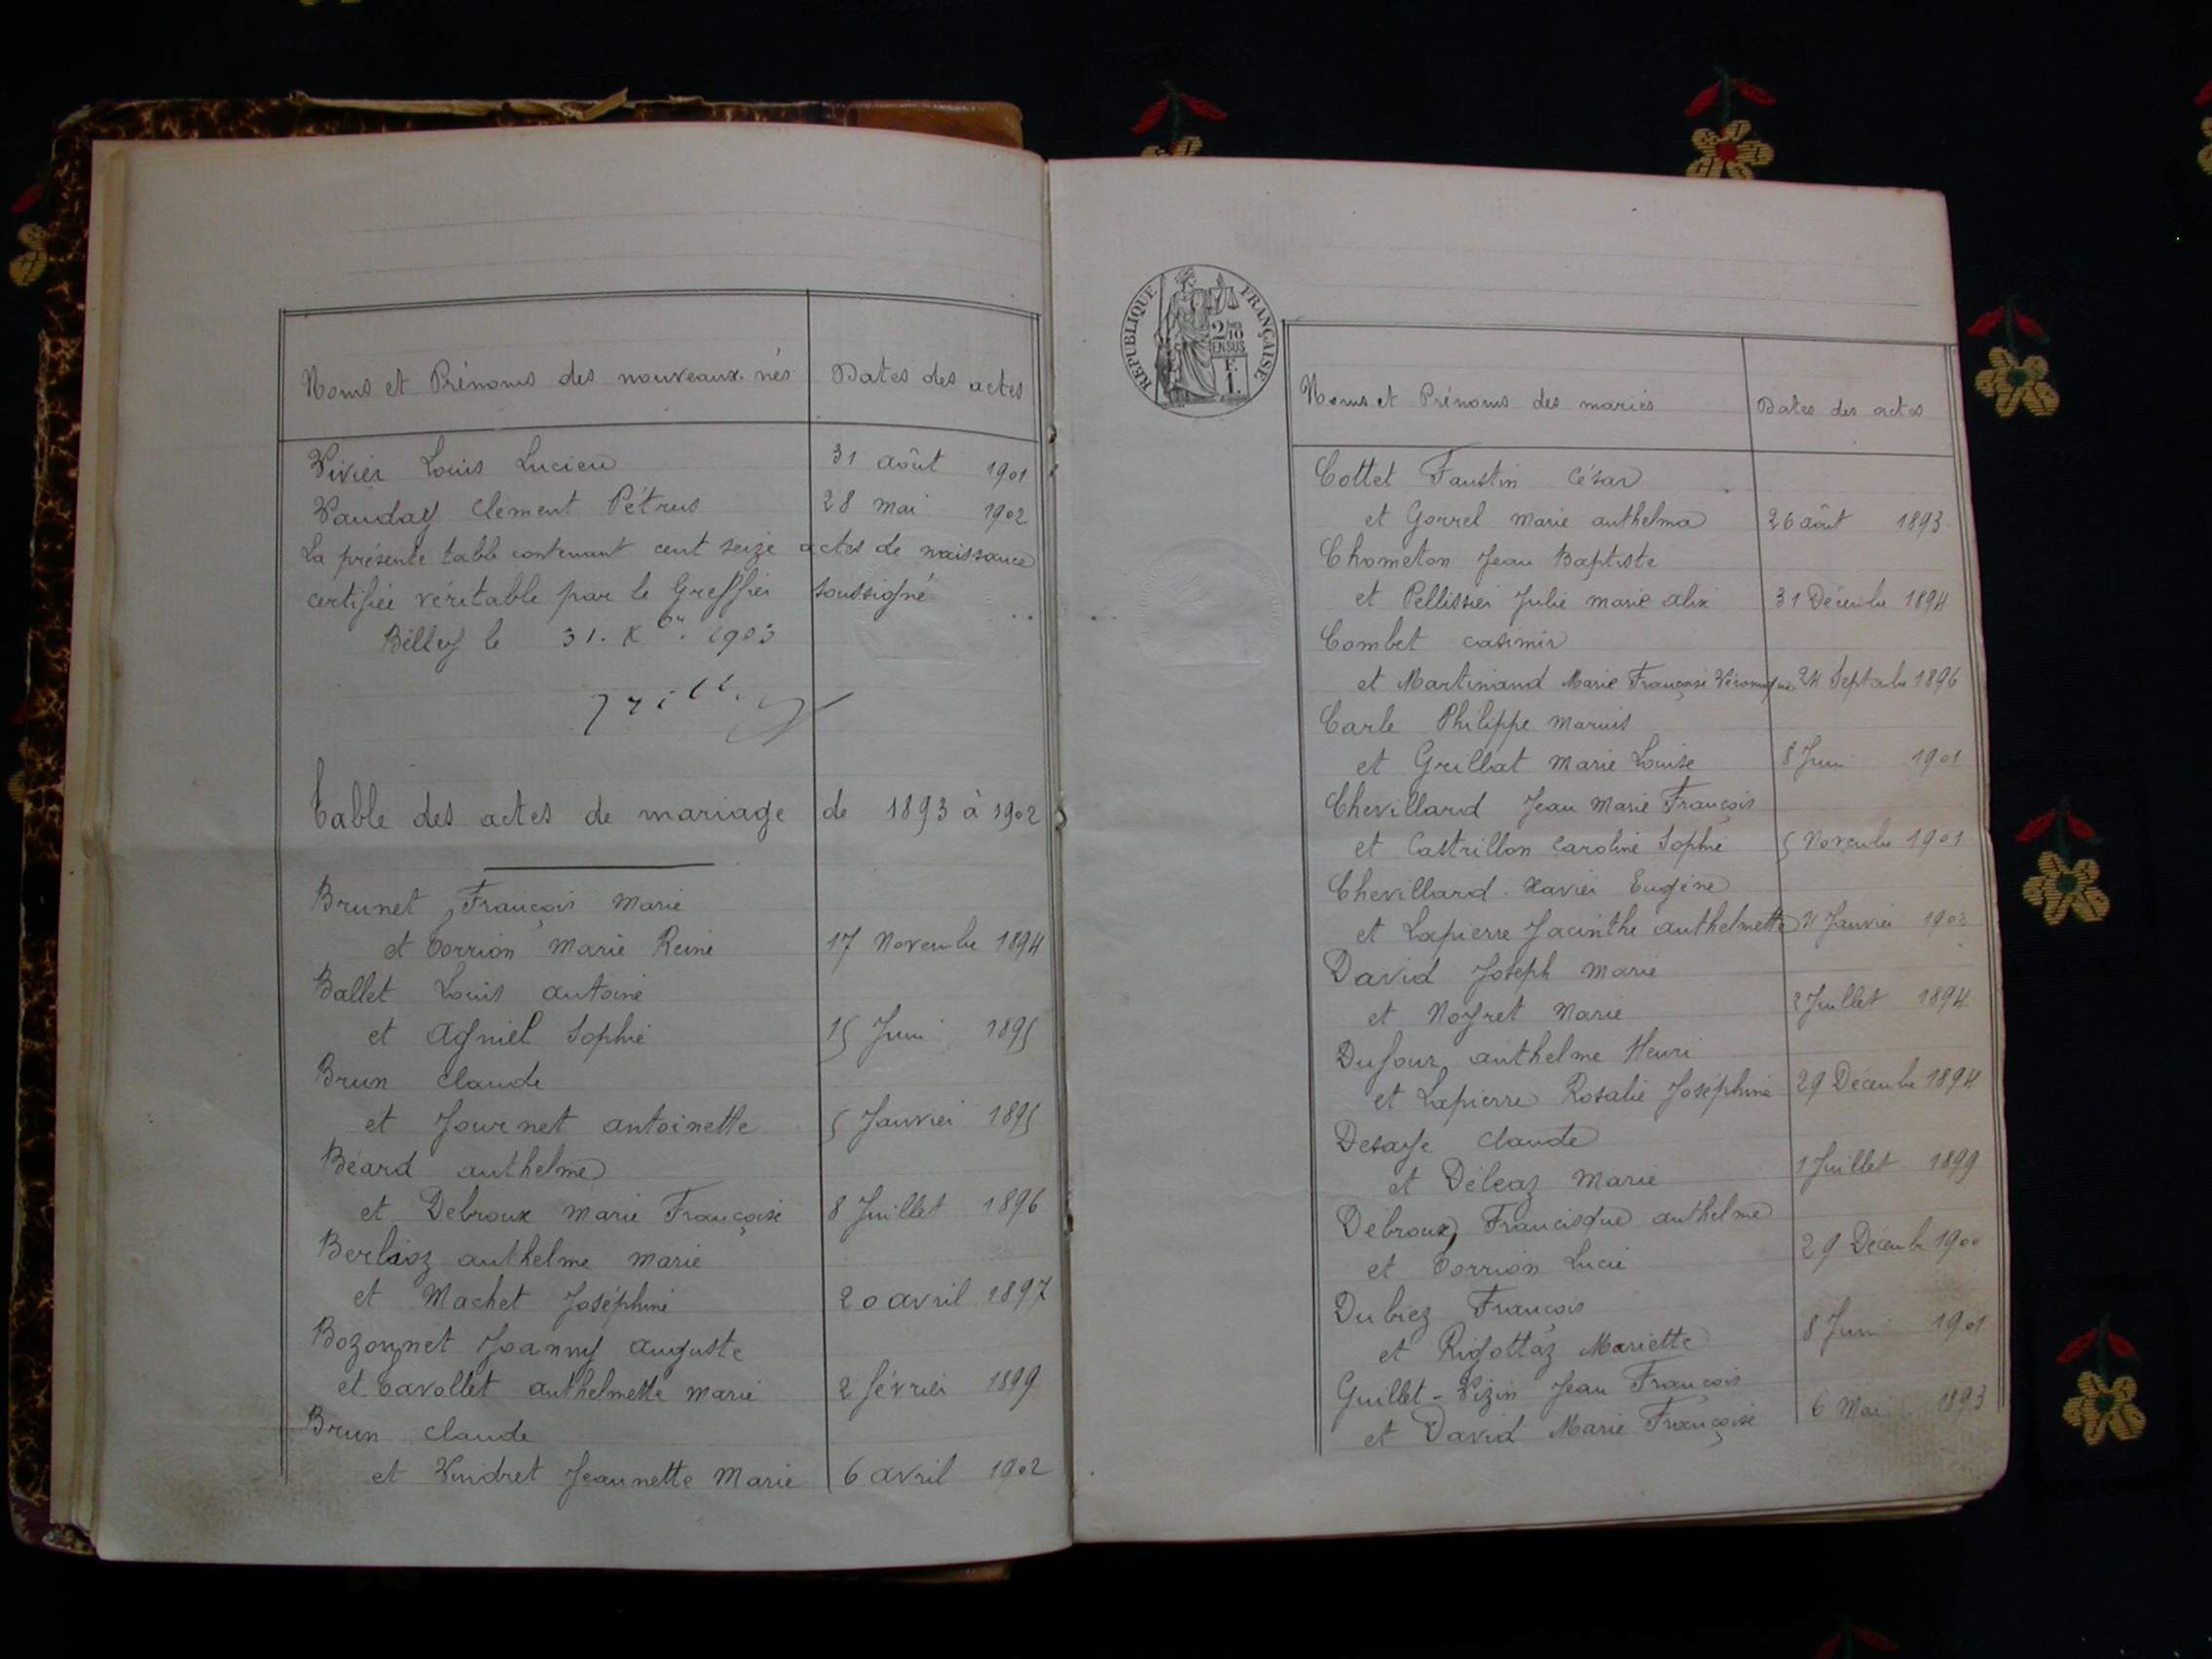 Noms et Prénoms des nouveaux-nés Dates des actes
Vivier Louis Lucien 31 août 1901
Vauday Clément Pétrus 28 mai 1902
La présente table contenant cent seize actes de naissance
certifiée véritable par le Greffier soussigné
Belley le 31. Xbre 1903
Table des actes de mariage de 1893 à 1902
Brunet François Marie
et Corrion Marie Reine 17 Novembre 1894
Ballet Louis antoine
et Agniel Sophie 15 Juin 1895
Brun Claude
et Journet antoinette 5 Janvier 1895
Béard anthelme
et Debroux Marie Françoise 8 Juillet 1896
Berlioz anthelme Marie
et Machet Joséphine 20 avril 1897
Bozonnet Joanny auguste
et Cavollet anthelmette Marie 2 février 1899
Brun Claude
et Vindret Jeannette Marie 6 avril 1902
REPUBLIQUE FRANÇAISE
2/10
EN SUS
F.
1.
Noms et Prénoms des mariés Dates des actes
Cottet Faustin César
et Gorrel Marie anthelma 26 août 1893
Chometon Jean Baptiste
et Pellissier Julie Marie alix 31 Décembre 1894
Combet Casimir
et Martinand Marie Françoise Véronique 24 Septembre 1896
Carle Philippe Marius
et Grillat Marie Louise 8 Juin 1901
Chevillard Jean Marie François
et Castrillon Caroline Sophie 5 Novembre 1901
Chevillard Xavier Eugène
et Lapierre Jacinthe anthelmette 4 Janvier 1902
David Joseph Marie
et Noyret Marie 2 Juillet 1894
Dufour anthelme Henri
et Lapierre Rosalie Joséphine 29 Décembre 1894
Desaye Claude
et Déléaz Marie 1 Juillet 1899
Debroux Francisque anthelme
et Corrion Lucie 29 Décembre 1900
Dubiez François
et Rigottaz Mariette 8 Juin 1901
Guillet-Vizin Jean François
et David Marie Françoise 6 Mai 1893